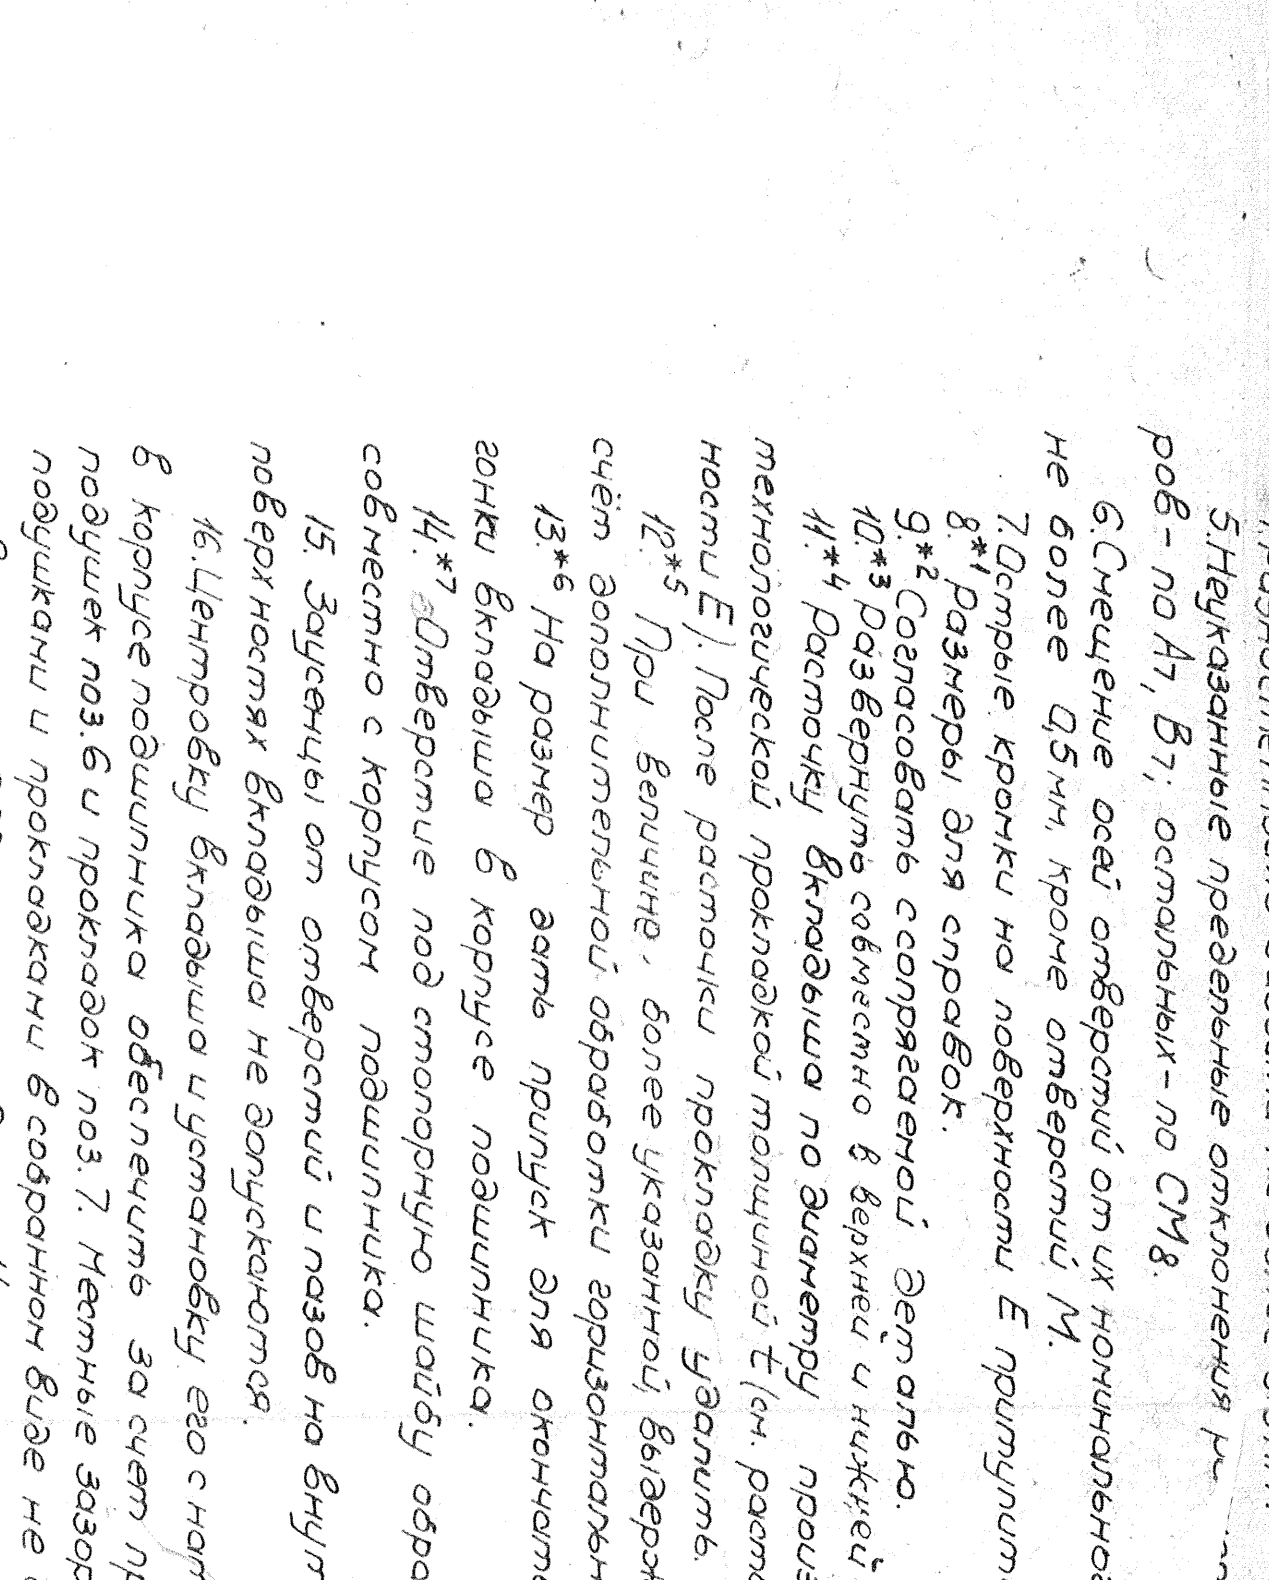 5. Неуказанные предельные отклонения
ров - по А7, В7; остальных - по СМ8.
6. Смещение осей отверстий от их номинально
не более 0,5 мм, кроме отверстий М.
7. Острые кромки на поверхности Е притупит
8.*1 Размеры для справок.
9.*2 Согласовать с сопрягаемой деталью.
10.*3 Развернуть совместно в верхней и нижней
11.*4 Расточку вкладыша по диаметру произ
технологической прокладкой толщиной t (см. раст
ности Е). После расточки прокладку удалить.
12.*5 При величине, более указанной, выдерж
счёт дополнительной обработки горизонтальн
13.*6 На размер дать припуск для окончат
гонки вкладыша в корпусе подшипника.
14.*7 Отверстие под стопорную шайбу обра
совместно с корпусом подшипника.
15. Заусенцы от отверстий и пазов на внут
поверхностях вкладыша не допускаются.
16. Центровку вкладыша и установку его с нат
в корпусе подшипника обеспечить за счет пр
подушек поз. 6 и прокладок поз. 7. Местные зазор
подушками и прокладками в собранном виде не